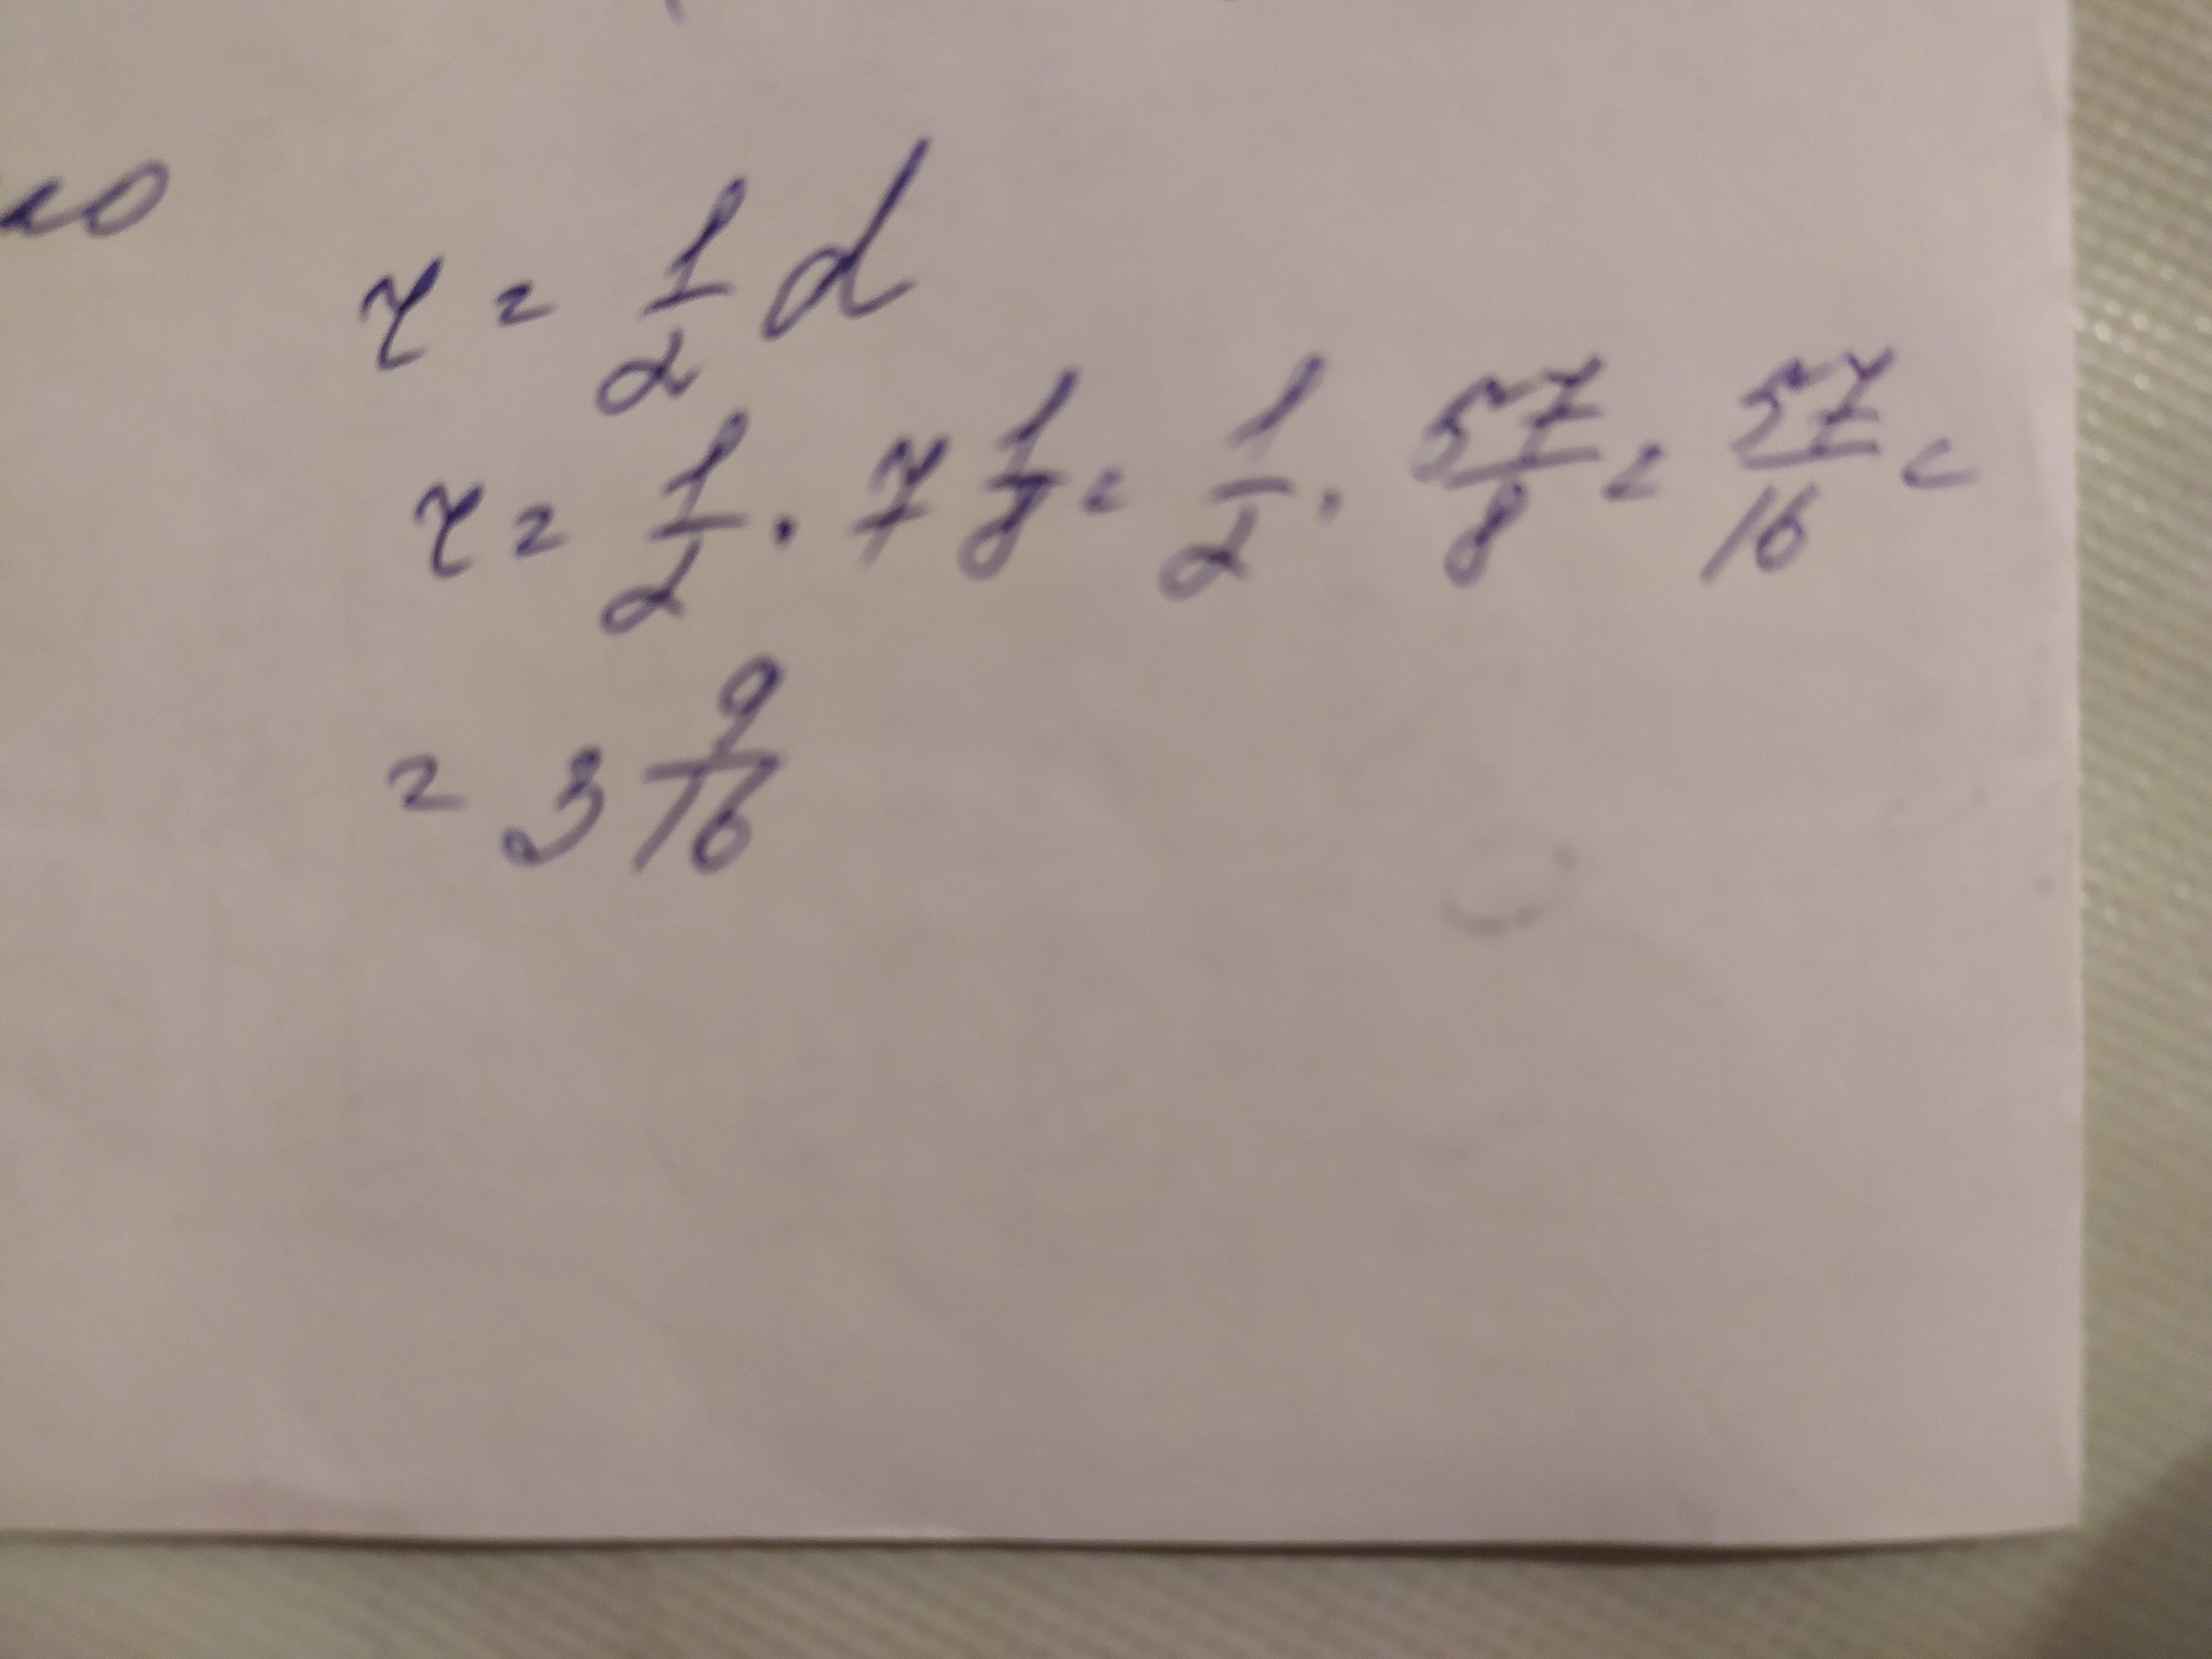 r = 1/2 d
r = 1/2 · 7 1/8 = 1/2 · 57/8 = 57/16 =
= 3 9/16